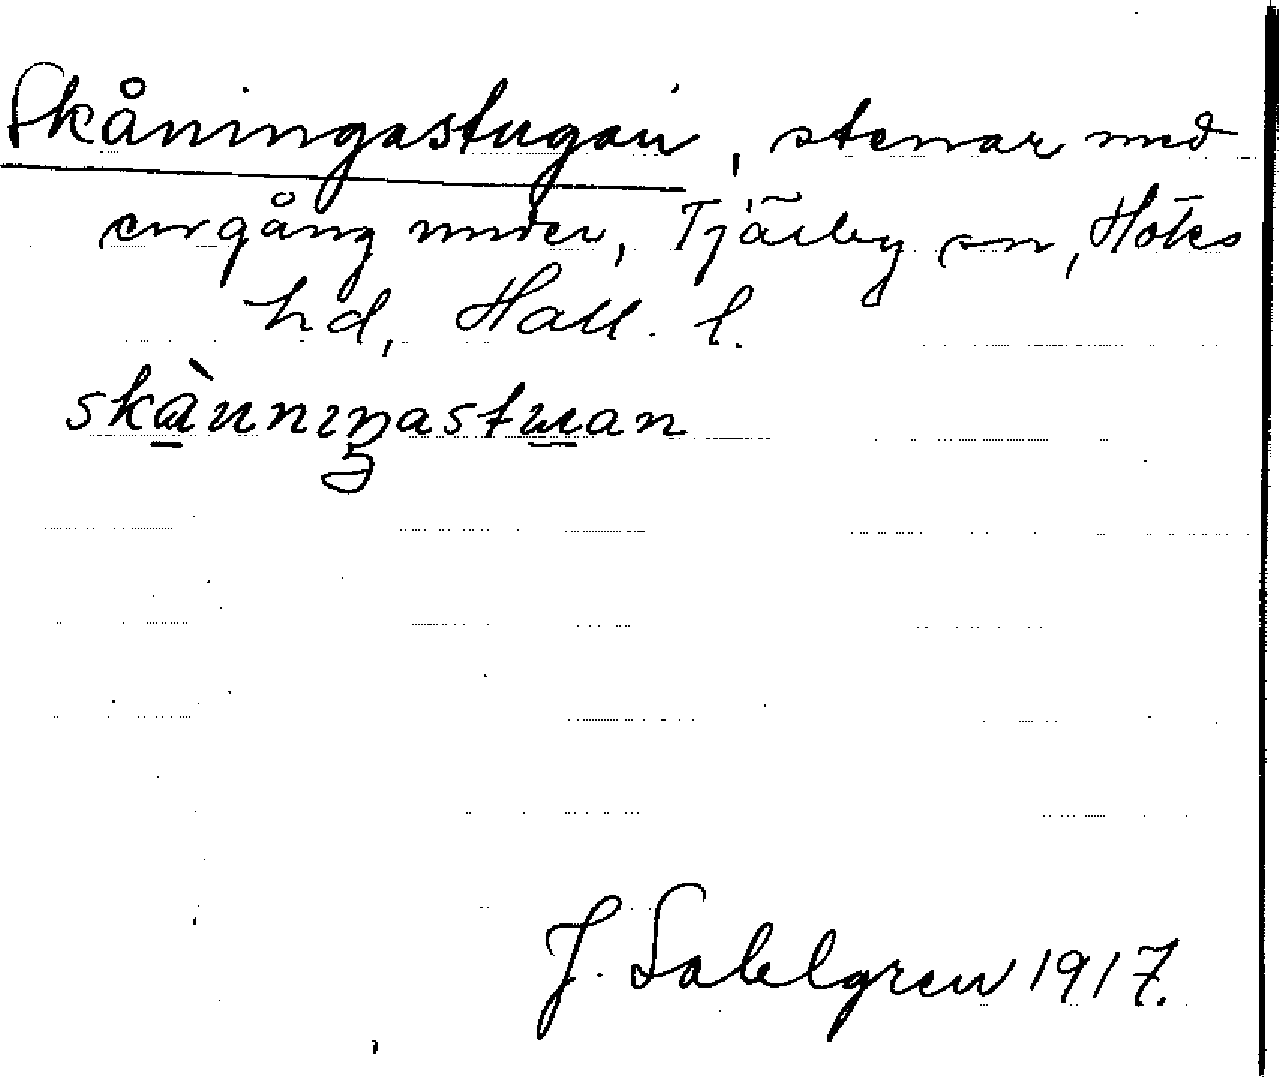 Skåningastugan, stenar med
en gång under, Tjärby sn, Höks
hd, Hall. l.
skànningastuan
J. Sahlgren 1917.